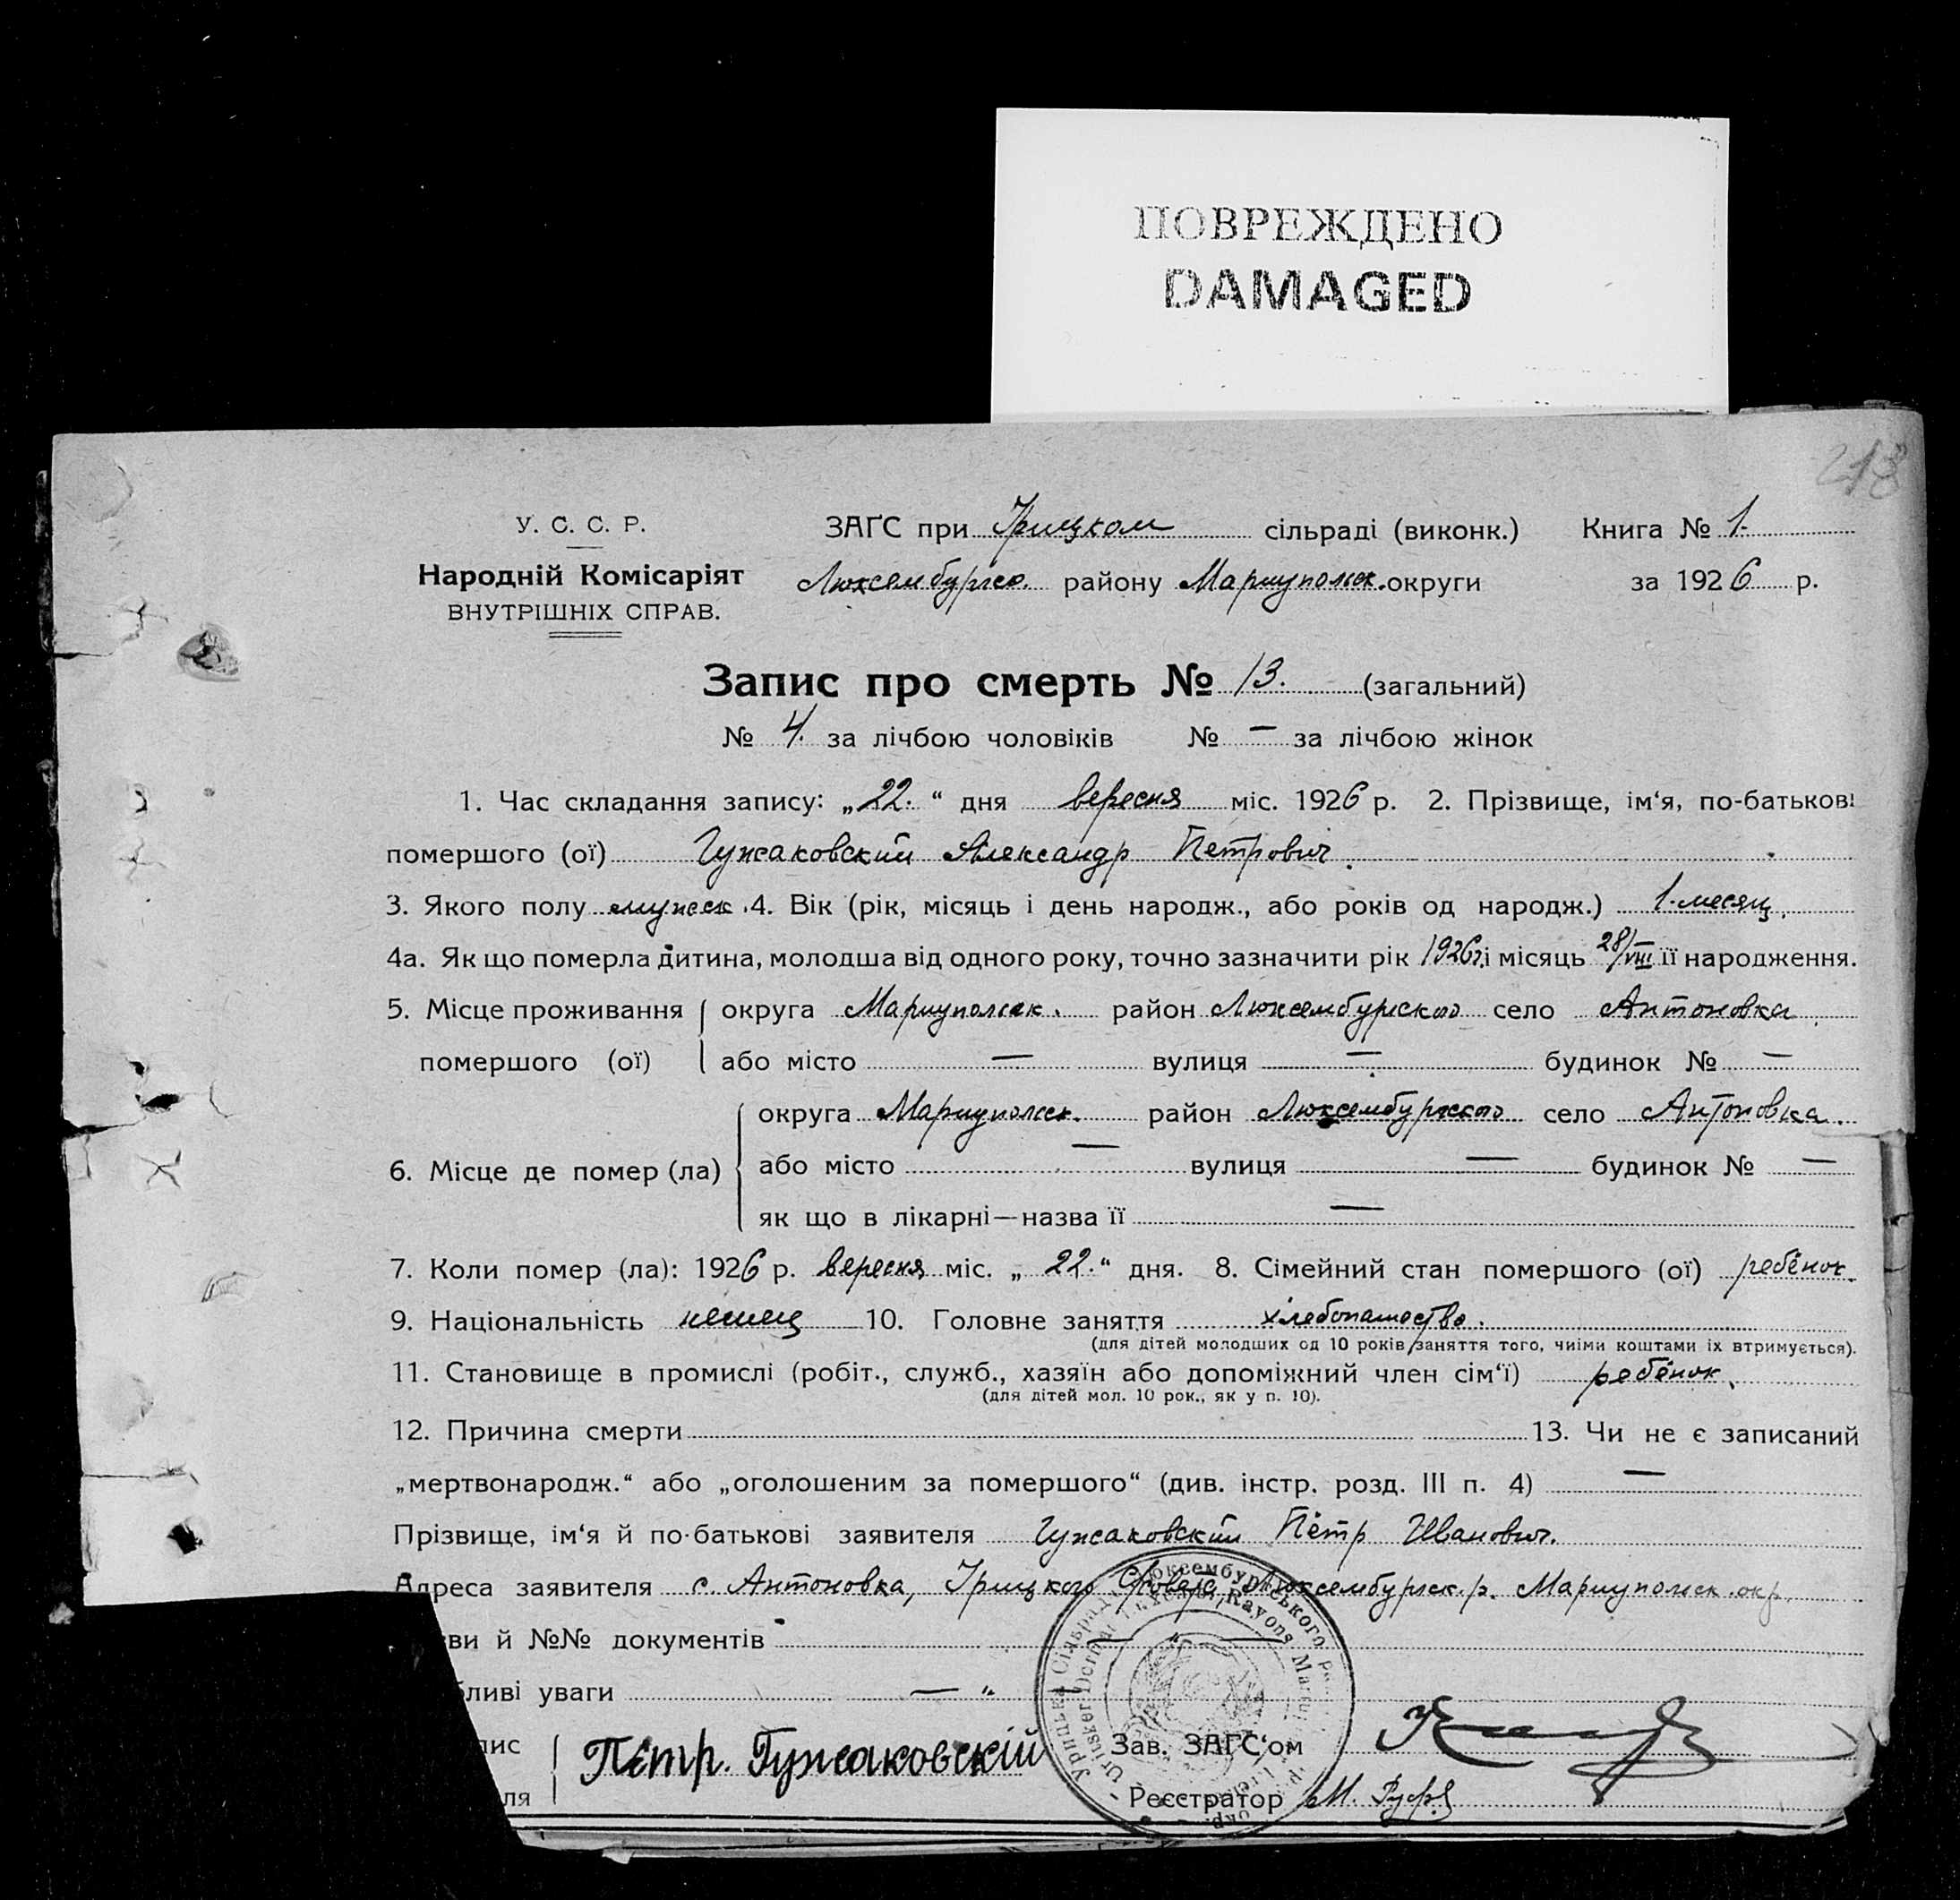 ПОВРЕЖДЕНО
DAMAGED
218
У. С. С. Р.
Народній Комісаріят
ВНУТРІШНІХ СПРАВ.
ЗАҐС при Урицком сільраді (виконк.) Книга № 1.
Люксембургск. району Мариупольск. округи за 1926 р.
Запис про смерть № 13. (загальний)
№ 4. за лічбою чоловіків № — за лічбою жінок
1. Час складання запису: „22.“ дня вересня міс. 1926 р. 2. Прізвище, ім‘я, по-батькові
помершого (ої) Гужаковский Александр Петрович.
3. Якого полу мужск. 4. Вік (рік, місяць і день народж., або років од народж.) 1. месяц.
4а. Як що померла дитина, молодша від одного року, точно зазначити рік 1926 г. і місяць 28/VIII її народження.
5. Місце проживання помершого (ої) округа Мариупольск. район Люксембургского село Антоновка
або місто — вулиця — будинок № —
6. Місце де помер (ла) округа Мариупольск. район Люксембургского село Антоновка.
або місто — вулиця — будинок № —
як що в лікарні—назва її —
7. Коли помер (ла): 1926 р. вересня міс. „22.“ дня. 8. Сімейний стан помершого (ої) ребёнок.
9. Національність немец 10. Головне заняття хлебопашество.
(для дітей молодших од 10 років заняття того, чиїми коштами їх втримується).
11. Становище в промислі (робіт., служб., хазяїн або допоміжний член сім‘ї) ребёнок.
(для дітей мол. 10 рок., як у п. 10).
12. Причина смерти 13. Чи не є записаний
„мертвонародж.“ або „оголошеним за помершого“ (див. інстр. розд. III п. 4) —
Прізвище, ім‘я й по-батькові заявителя Гужаковский Пётр Иванович.
Адреса заявителя с. Антоновка, Урицкого с/совета, Люксембургск. р. Мариупольск. окр.
ви й №№ документів — „ —
бливі уваги — „ —
пис Петр. Гужаковскій Зав. ЗАҐС‘ом
ля Реєстратор М.